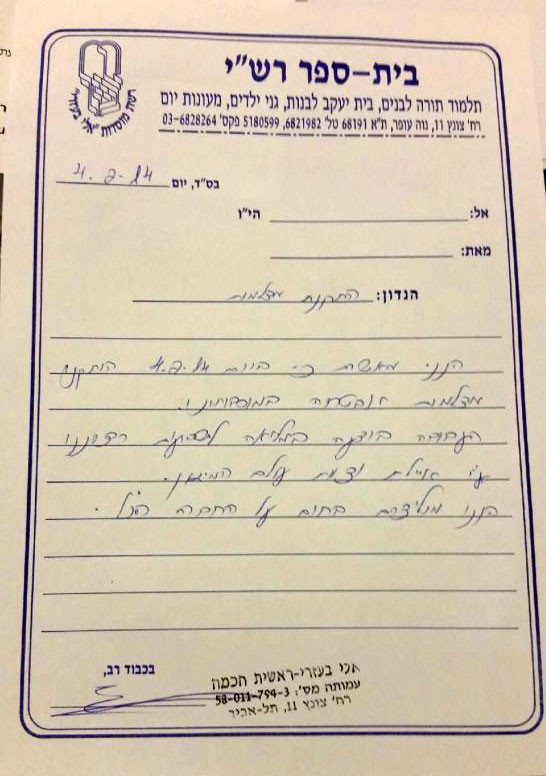 רשת מוסדות "אלי בעזרי"
בית-ספר רש"י
תלמוד תורה לבנים, בית יעקב לבנות, גני ילדים, מעונות יום
רח' צונץ 11, נוה עופר, ת"א 68191 טל' 6821982, 5180599 פקס' 03-6828264
בס"ד, יום 4.2.14
אל: הי"ו
מאת:
הנדון: התקנת מצלמות
הנני מאשר כי ביום 4.2.14 הותקנו
מצלמות אבטחה במוסדותינו.
העבודה בוצעה במלואה לשביעות רצוננו
ע"י איילת וצוות עולם המיגון.
הננו ממליצים בחום על החברה הנ"ל.
בכבוד רב,
אלי בעזרי-ראשית חכמה
עמותה מס': 58-011-794-3
רח' צונץ 11, תל-אביב